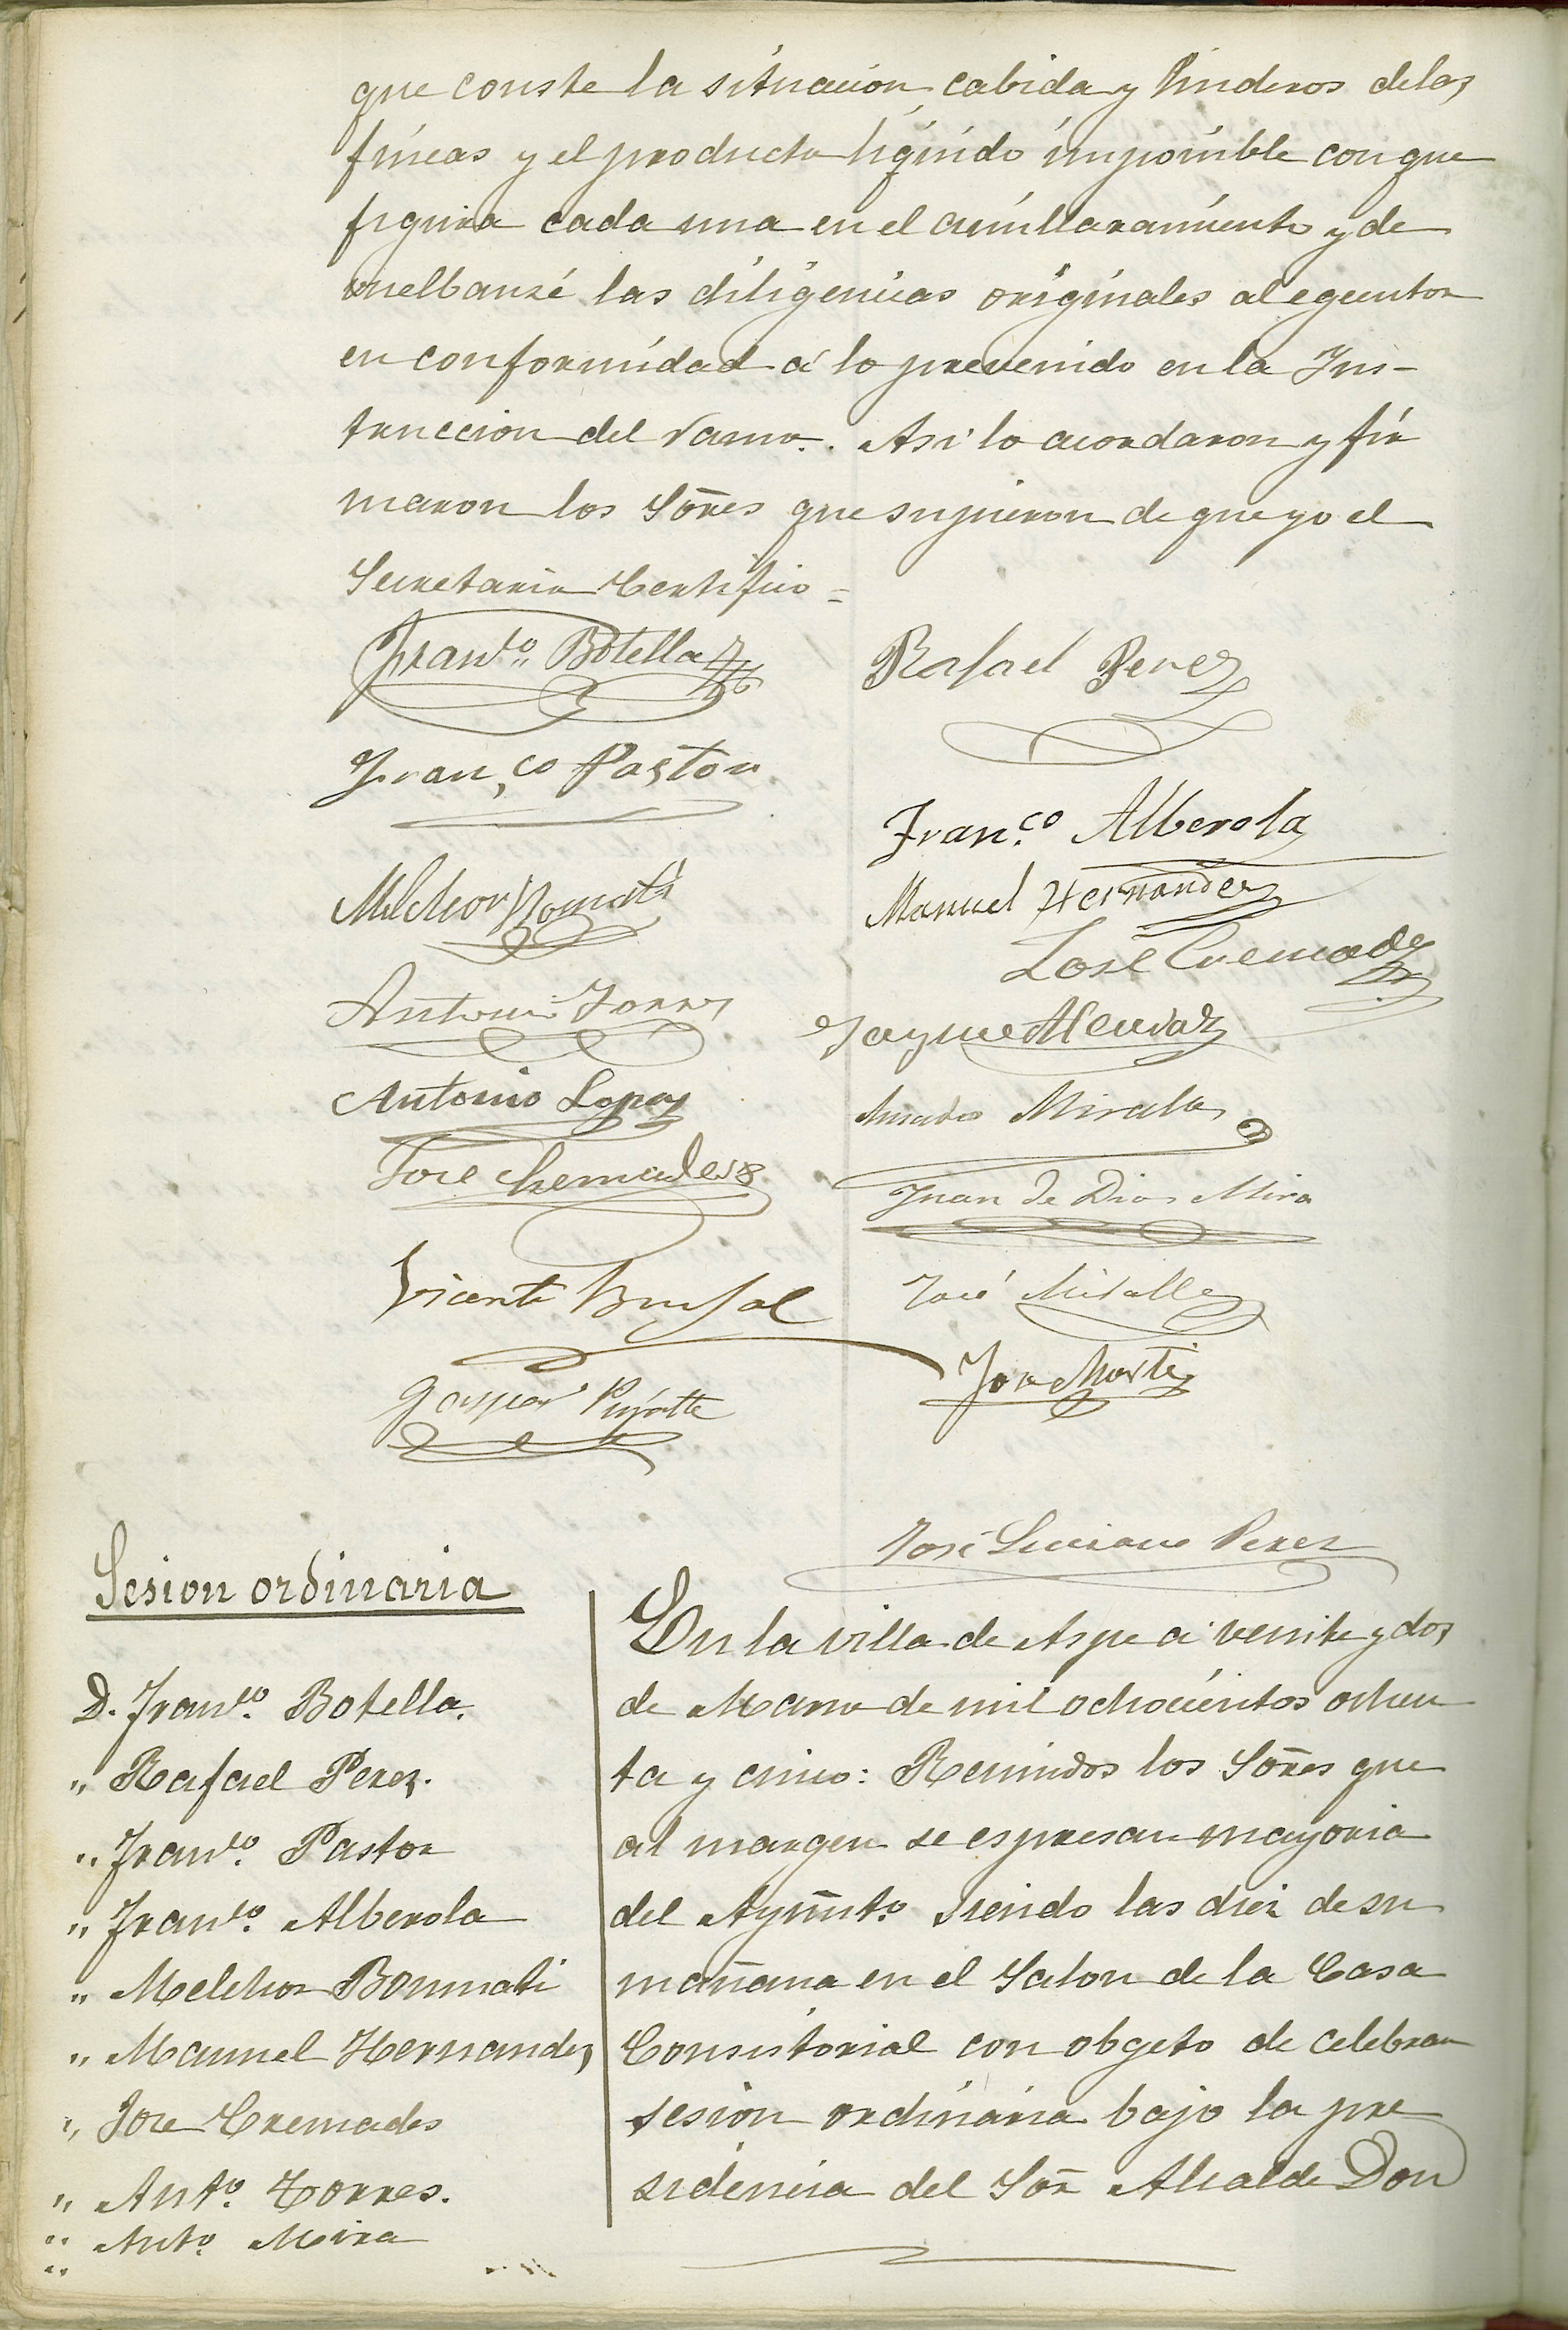 que conste la situacion, cabida y linderos delas
fincas y el producto liquido imponible con que
figura cada una en el amillaramiento y de
vuelbansé las diligencias originales al egecutor
en conformidad á lo prevenido en la Ins-
truccion del ramo. Asi lo acordaron y fir
maron los Sōres que supieron de que yo el
Secretario Certifico =
Franco. Botella
Rafael Perez
Fran,co Pastor
Fran.co Alberola
Melchor Bonmati
Manuel Hernandez
José Cremades
Antonio Torres
Jayme Alcaraz
Antonio Lopez
Amador Miralles
Jose Cremades
Juan de Dios Mira
Vicente Brufal
José Miralles
Jose Marti
Gaspar Pujalte
José Luciano Perez
Sesion ordinaria
D. Franco. Botella.
" Rafael Perez.
" Franco. Pastor
" Franco. Alberola
" Melchor Bonmati
" Manuel Hernandez
" Jose Cremades
" Anto. Torres.
" Anto. Mira
"
En la villa de Aspe á veinte y dos
de Marzo de mil ochocientos ochen
ta y cinco: Reunidos los Sōres que
al margen se espresan mayoria
del Aymto. siendo las diez de su
mañana en el Salon de la Casa
Consistorial con obgeto de celebrar
sesion ordinaria bajo la pre
sidencia del Sōr Alcalde Don